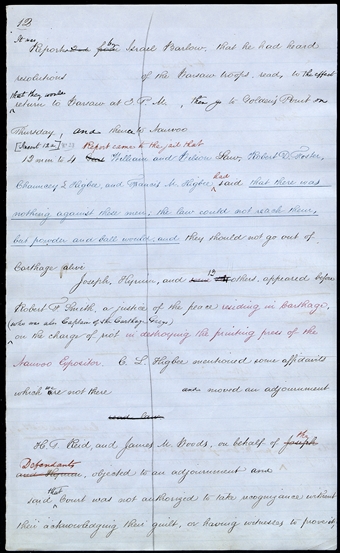 12
It was
Report by Israel Barlow, that he had heard
resolutions of the Warsaw troops, read, to the effect
that they would
return to Warsaw at 3 P.M., then go to Golden's Point on
Thursday, and thence to Nauvoo
Report came to the jail that
12 min to 4 William and Wilson Law, Robert D. Foster,
Chauncey L Higbee, and Francis M. Higbee had said that there was
nothing against these men; the law could not reach them,
but powder and ball would; and they should not go out of
Carthage alive
Joseph, Hyrum, and 13 others, appeared before
Robert F. Smith, a justice of the peace residing in Carthage,
(who was also Captain of the Carthage Greys)
on the charge of riot in destroying the printing press of the
Nauvoo Expositor. C. L. Higbee mentioned some affidavits
which were not there and moved an adjournment
H. T. Reid, and James W. Woods, on behalf of the
Defendants
and Hyrum, objected to an adjournment and
said that Court was not authorized to take recognizance without
their acknowledging their guilt, or having witnesses to prove it